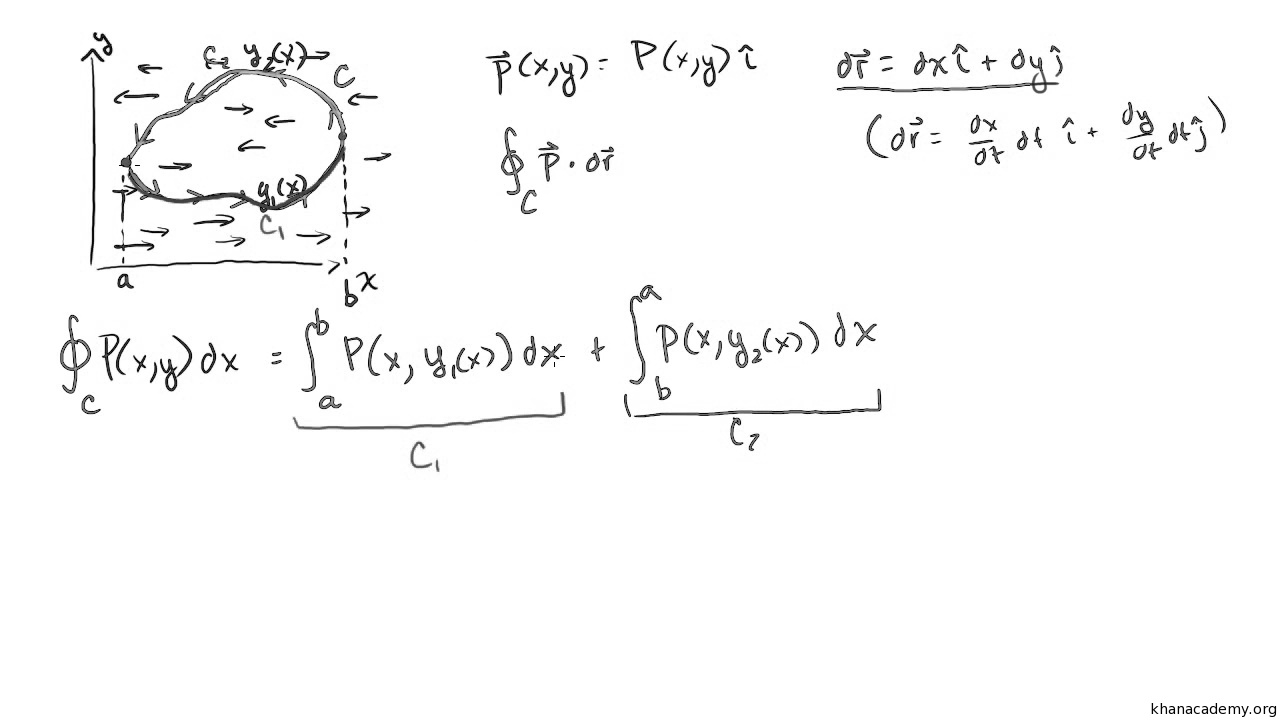 y
C₂ y₂(x)
C
y₁(x)
C₁
a
b x
p⃗(x,y) = P(x,y) î
∮_C p⃗ · dr⃗
dr⃗ = dx î + dy ĵ
(dr⃗ = dx/dt dt î + dy/dt dt ĵ)
∮_C P(x,y) dx = ∫_a^b P(x, y₁(x)) dx + ∫_b^a P(x, y₂(x)) dx
C₁ C₂
khanacademy.org